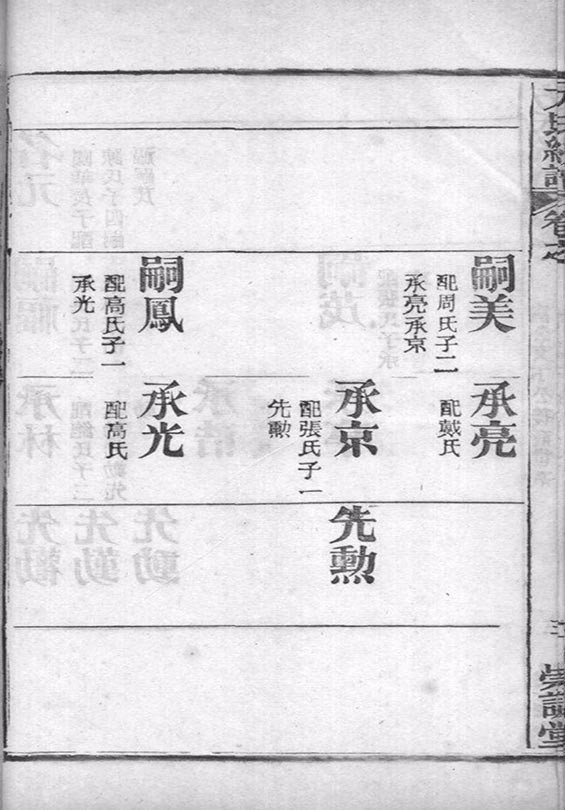 卷之
嗣美
配周氏子二
承亮承京
承亮
配戴氏
承京
配張氏子一
先勳
先勳
嗣鳳
配高氏子一
承光
承光
配高氏